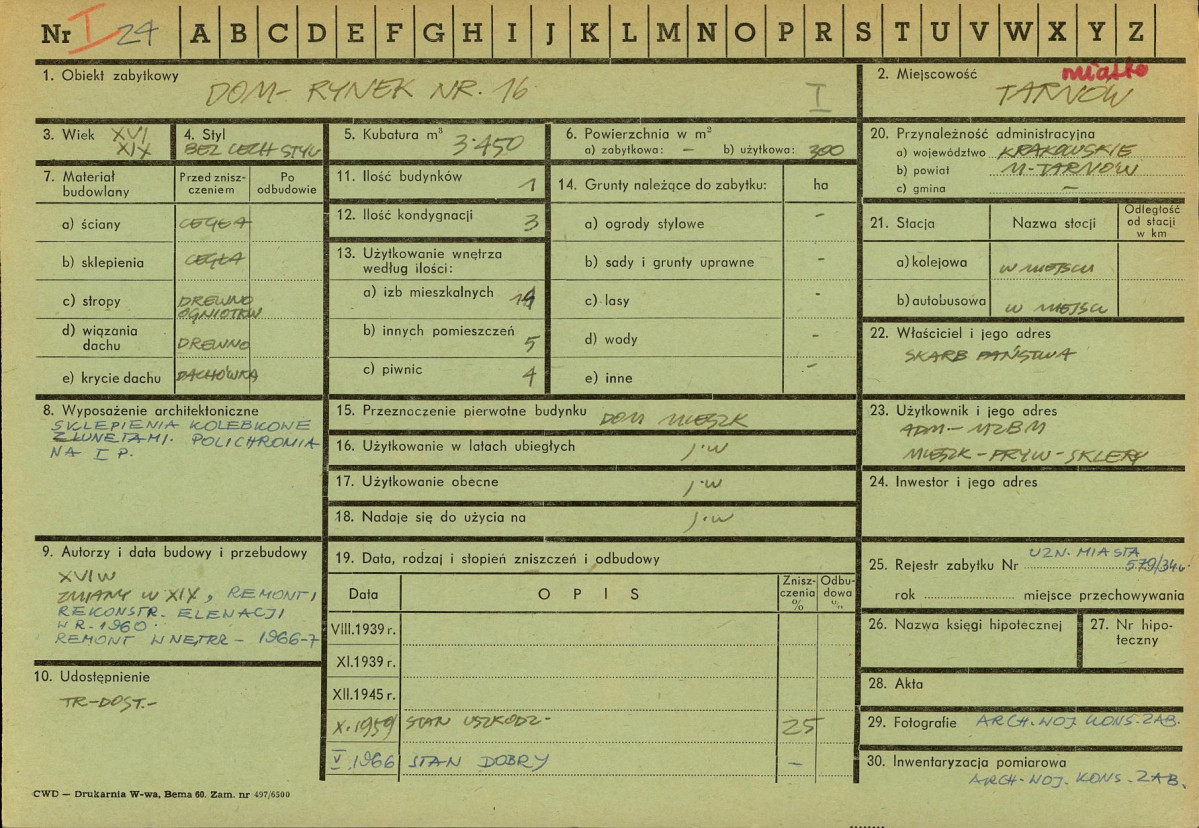 Nr I 24 A B C D E F G H I J K L M N O P R S T U V W X Y Z
1. Obiekt zabytkowy
DOM - RYNEK NR. 16
I
2. Miejscowość
miasto
TARNÓW
3. Wiek XVI
XIX
4. Styl
BEZ CECH STYLU
5. Kubatura m³
3.450
6. Powierzchnia w m²
a) zabytkowa: – b) użytkowa: 300
20. Przynależność administracyjna
a) województwo KRAKOWSKIE
b) powiat M-TARNÓW
c) gmina –
7. Materiał budowlany
Przed znisz-
czeniem
Po
odbudowie
a) ściany CEGŁA
b) sklepienia CEGŁA
c) stropy DREWNO
OGNIOTRW
d) wiązania
dachu DREWNO
e) krycie dachu DACHÓWKA
11. Ilość budynków 1
12. Ilość kondygnacji 3
13. Użytkowanie wnętrza
według ilości:
a) izb mieszkalnych
b) innych pomieszczeń 5
c) piwnic 4
14. Grunty należące do zabytku: ha
a) ogrody stylowe -
b) sady i grunty uprawne -
c) lasy -
d) wody -
e) inne -
21. Stacja Nazwa stacji
Odległość
od stacji
w km
a) kolejowa W MIEJSCU
b) autobusowa W MIEJSCU
22. Właściciel i jego adres
SKARB PAŃSTWA
8. Wyposażenie architektoniczne
SKLEPIENIA KOLEBKOWE
Z LUNETAMI. POLICHROMIA
NA I P.
15. Przeznaczenie pierwotne budynku DOM MIESZK
16. Użytkowanie w latach ubiegłych j.w
17. Użytkowanie obecne j.w
18. Nadaje się do użycia na j.w
23. Użytkownik i jego adres
ADM - MZBM
MIESZK - PRYW - SKLEPY
24. Inwestor i jego adres
9. Autorzy i data budowy i przebudowy
XVI W
ZMIANY W XIX, REMONT I
REKONSTR. ELEWACJI
W R. 1960.
REMONT WNĘTRZ - 1966-7
19. Data, rodzaj i stopień zniszczeń i odbudowy
Data O P I S
Znisz-
czenia
%
Odbu-
dowa
%
VIII.1939 r.
XI.1939 r.
XII.1945 r.
X.1959 STAN USZKODZ- 25
V 1966 STAN DOBRY –
25. Rejestr zabytku Nr UZN. MIASTA
rok miejsce przechowywania
26. Nazwa księgi hipotecznej
27. Nr hipo-
teczny
10. Udostępnienie
TR-DOST.-
28. Akta
29. Fotografie ARCH. WOJ. KONS. ZAB.
30. Inwentaryzacja pomiarowa
ARCH. WOJ. KONS. ZAB.
CWD — Drukarnia W-wa, Bema 60. Zam. nr 497/6500